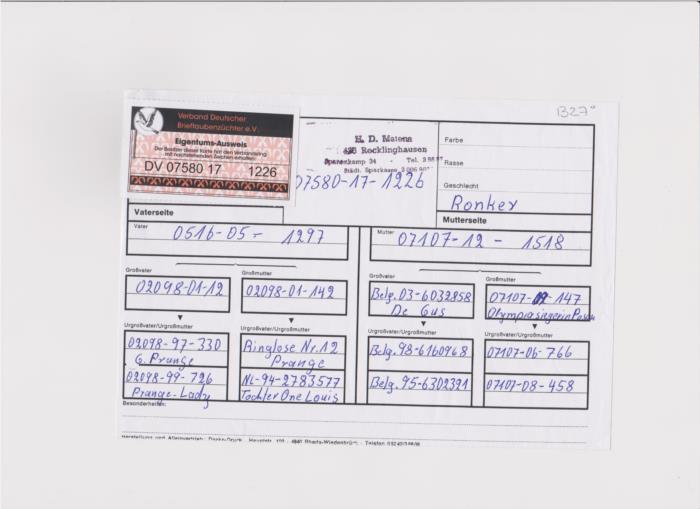 B27"
Verband Deutscher
Brieftaubenzüchter e.V.
Eigentums-Ausweis
Der Besitzer dieser Karte hat den Verbandsring
mit nachstehenden Zeichen erhalten:
DV 07580 17 1226
H. D. Matena
Recklinghausen
34 - Tel.
Städt. Sparkasse
07580-17-1226
Farbe
Rasse
Geschlecht
Ronker
Vaterseite
Mutterseite
Vater
0516-05- 1297
Mutter
07107-12 - 1518
Großvater
02098-01-12
Großmutter
02098-01-142
Großvater
Belg. 03-6032858
De Gus
Großmutter
07107- -147
Olympiasiegerin
Urgroßvater/Urgroßmutter
02098-97-330
G. Prange
02098-99-726
Prange-Lady
Urgroßvater/Urgroßmutter
Ringlose Nr. 12
Prange
NL-94-2783577
Tochter One Louis
Urgroßvater/Urgroßmutter
Belg. 98-6160968
Belg. 95-6302391
Urgroßvater/Urgroßmutter
07107-06-766
07107-08-458
Besonderheiten:
Herstellung und Alleinvertrieb: Hauptstr. Rheda-Wiedenbrück - Telefon